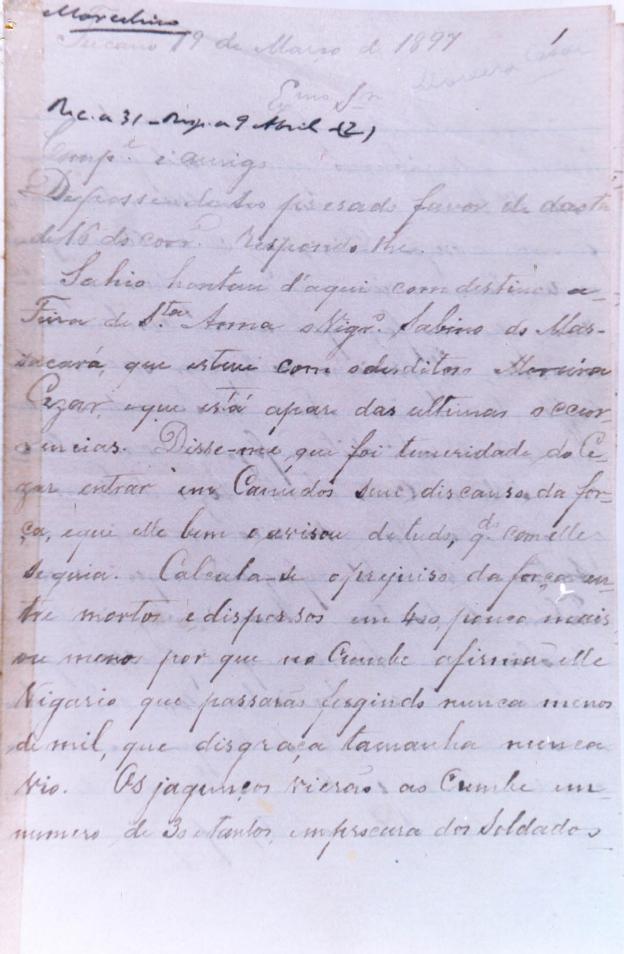 Marcelino
Tucano 19 de Março de 1897
1
Moreira Cesar
Exmo. Snr.
Rec. a 31 - Resp. a 9 Abril (2)
Compe. e amigo
De posse de seo presado favor de
de 16 do corre. respondo-lhe.
Sahio hontem d'aqui com destino a
Feira de Sta. Anna o Vigro. Sabino do Mas-
sacará, que esteve com o desditoso Moreira
Cezar, e que está apar das ultimas occur-
rencias. Disse-me que foi temeridade do Ce-
zar entrar em Canudos sem discanso da for-
ça, e que elle bem o avisou de tudo, qdo. com elle
seguia. Calcula-se o prejuiso da força en-
tre mortos e dispersos em 400, pouco mais
ou meno por que no Cumbe afirma elle
Vigario que passarão fugindo nunca menos
de mil, que disgraça tamanha nunca
vio. Os jagunços vierão ao Cumbe em
numero de 30 e tantos, em procura dos Soldados